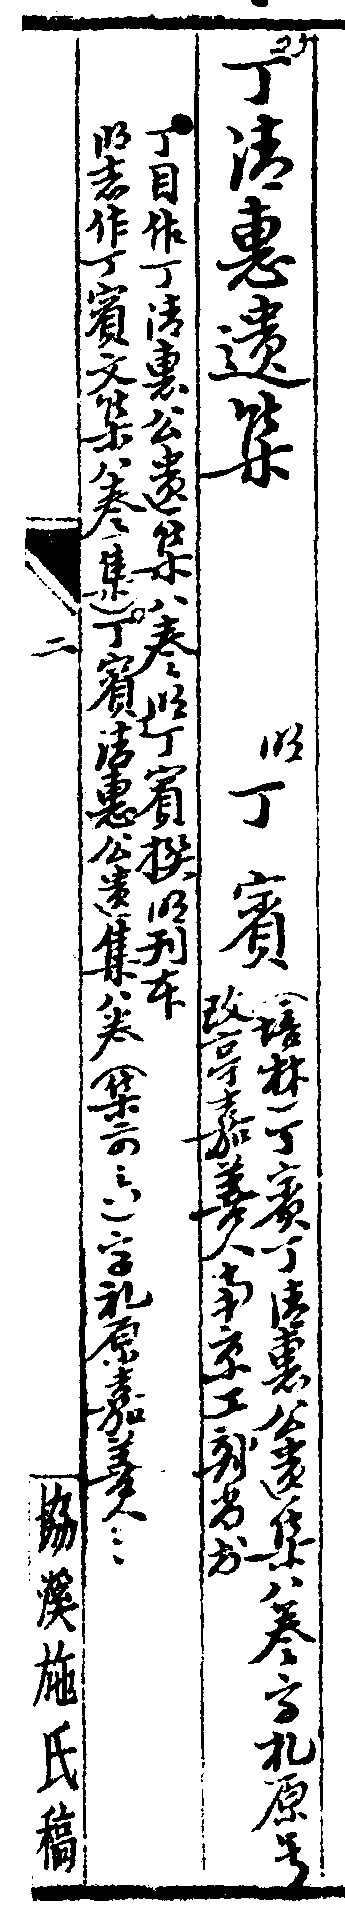 丁清惠遺集
明丁賓
（培林）丁賓丁清惠公遺集八卷字礼原号
改亭嘉善人南京工部尚书
丁目作丁清惠公遺集八卷明丁賓撰明刊本
明志作丁賓文集八卷（集一）丁賓清惠公遺集八卷（集部三六）字礼原嘉善人
二
協溪施氏稿